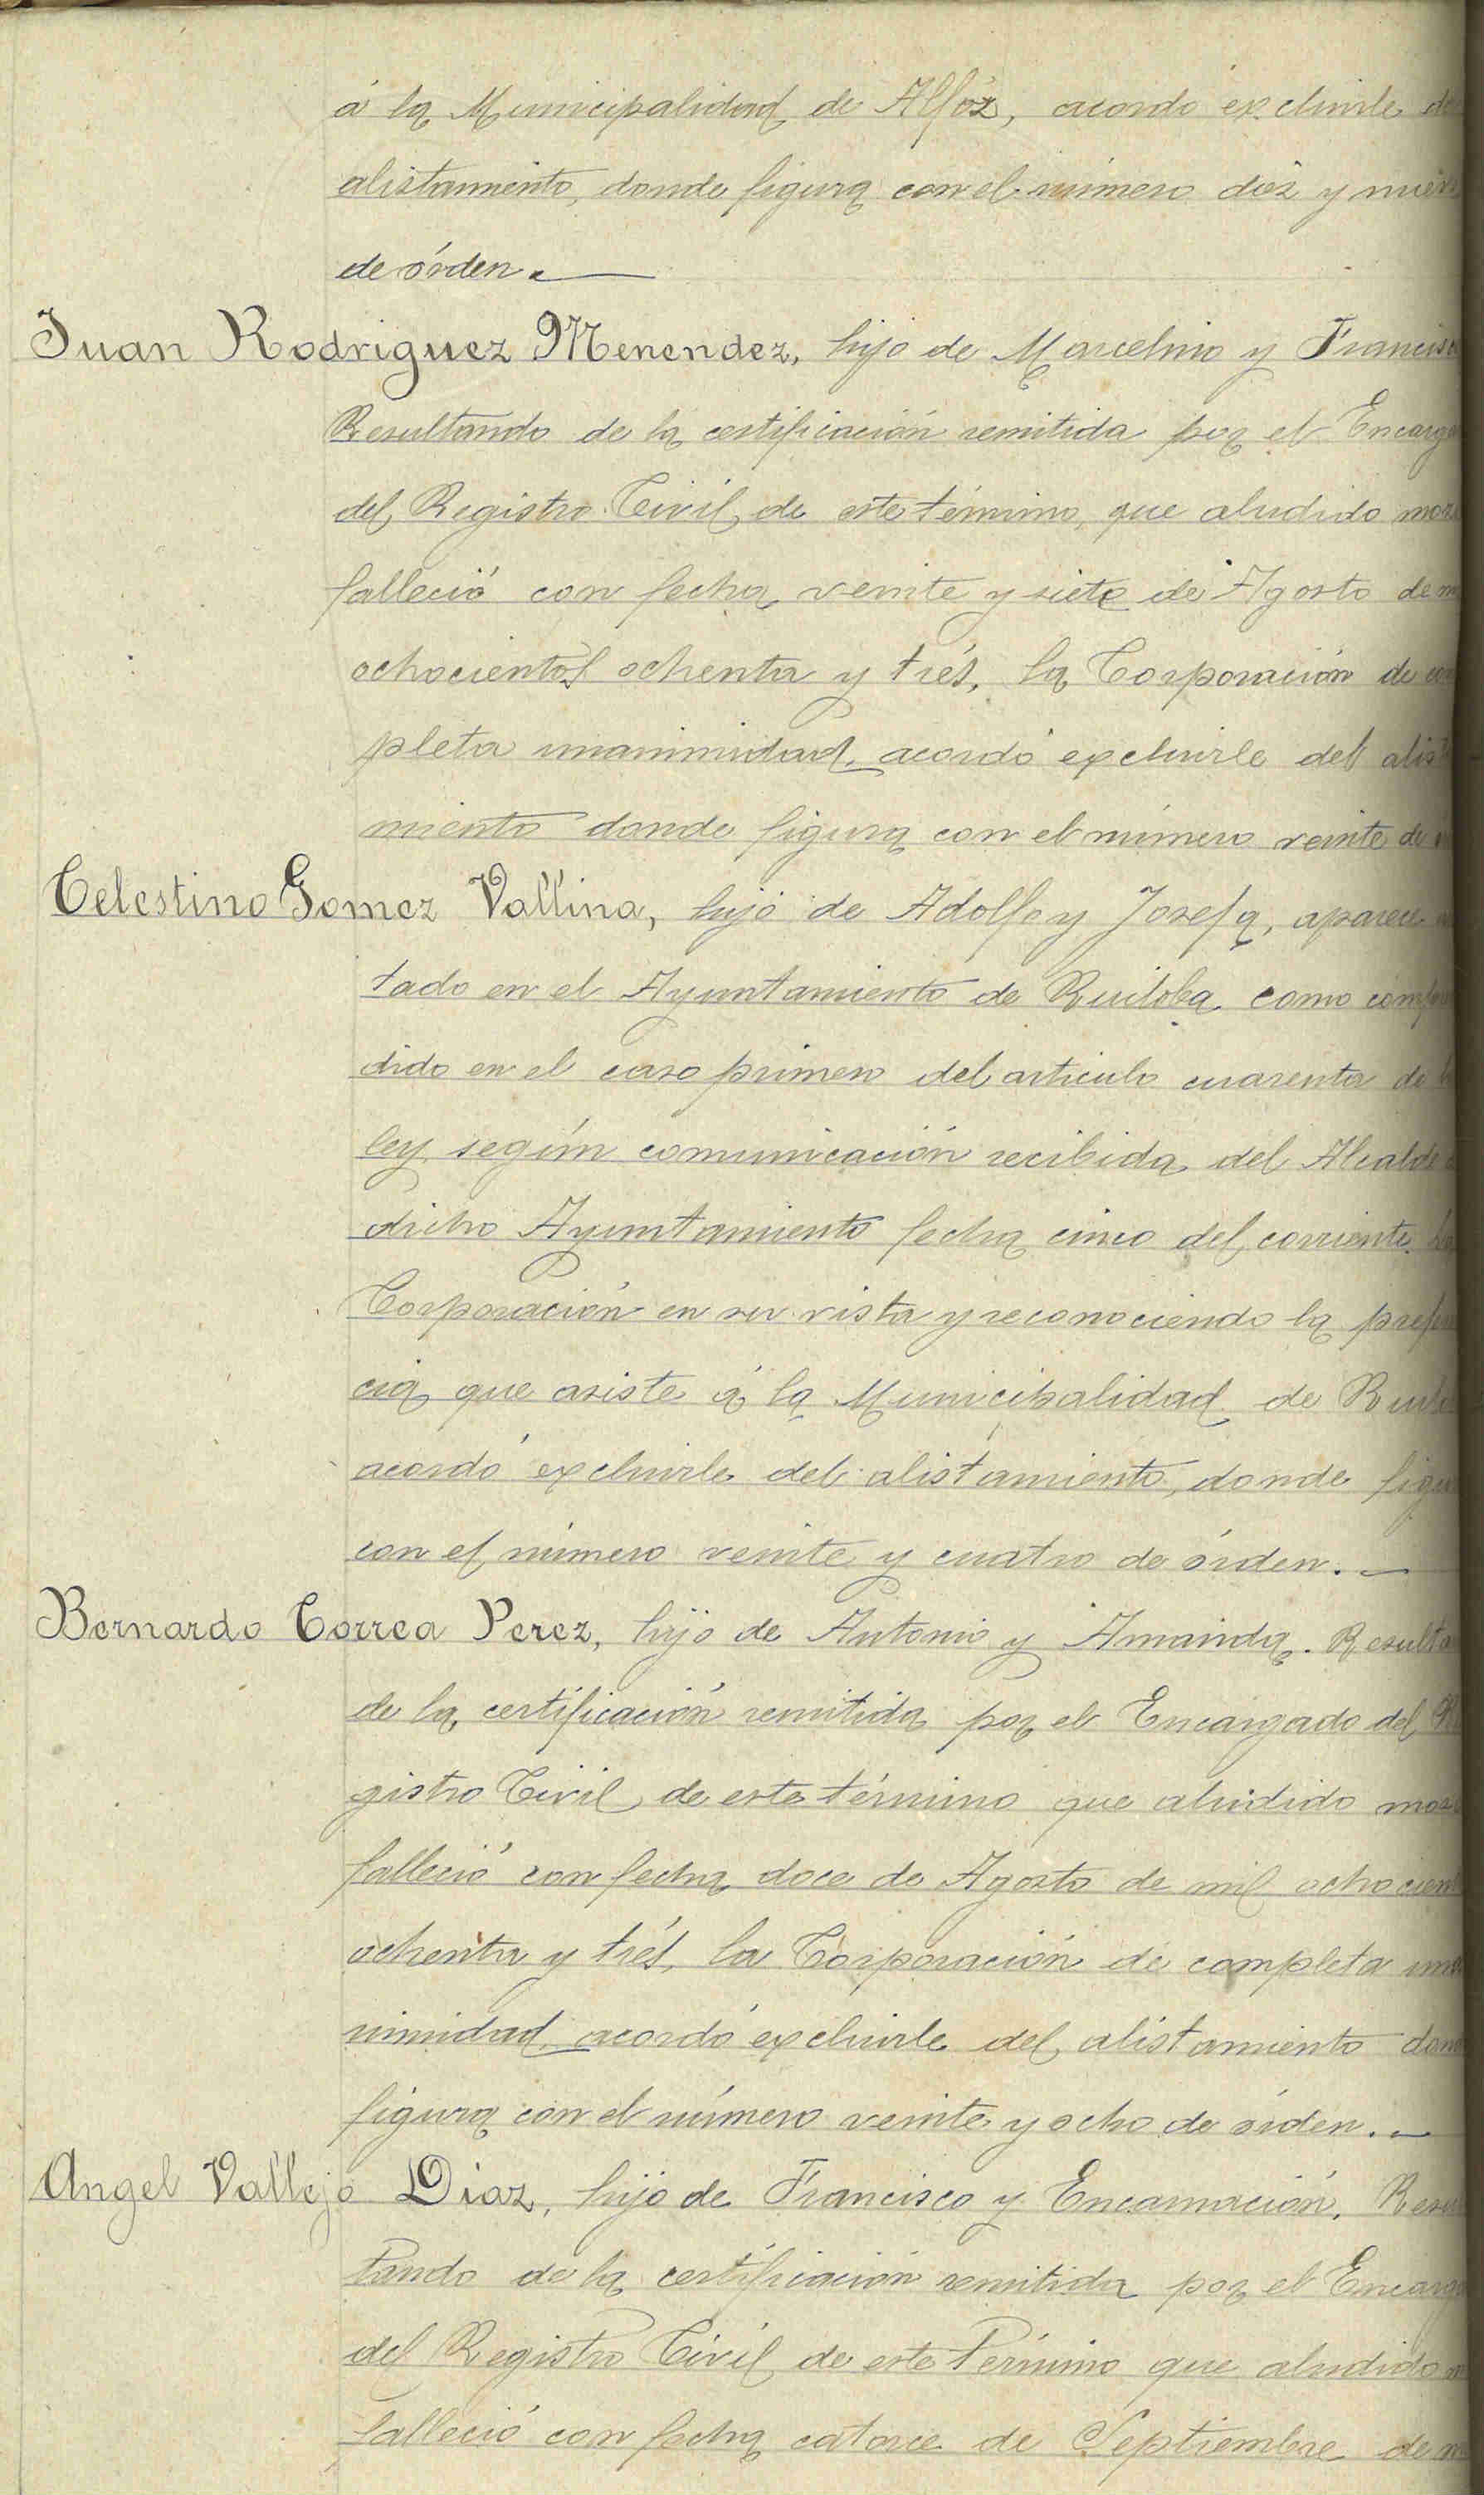 á la Municipalidad de Alfóz, acordó excluirle de
alistamiento, donde figura con el número diez y nueve
de órden.
Juan Rodriguez Menendez, hijo de Marcelino y Francisc
Resultando de la certificación remitida por el Encarg
del Registro Civíl de este término, que aludido moz
falleció con fecha veinte y siete de Agosto de m
ochocientos ochenta y trés, la Corporación de com
pleta unanimidad acordó excluirle del alist
miento donde figura con el número veinte de
Celestino Gomez Vallina, hijo de Adolfo y Josefa, aparece
tado en el Ayuntamiento de Ruiloba como compr
dido en el caso primero del articulo cuarenta de l
ley, según comunicación recibida del Alcalde
dicho Ayuntamiento fecha cinco del corriente. La
Corporación en su vista y reconociendo la prefe
cia que asiste á la Municipalidad de Ruil
acordó excluirle del alistamiento, donde figu
con el número veinte y cuatro de órden.
Bernardo Correa Perez, hijo de Antonio y Amanda. Resulta
de la certificación remitida por el Encargado del R
gistro Civil de este término que aludido moz
falleció con fecha doce de Agosto de mil ochocien
ochenta y trés, la Corporación de completa una
nimidad acordó excluirle del alistamiento don
figura con el número veinte y ocho de órden.
Angel Vallejo Diaz, hijo de Francisco y Encarnación. Resu
tando de la certificación remitida por el Encarg
del Registro Civíl de este término que aludido
falleció con fecha catorce de Septiembre de m